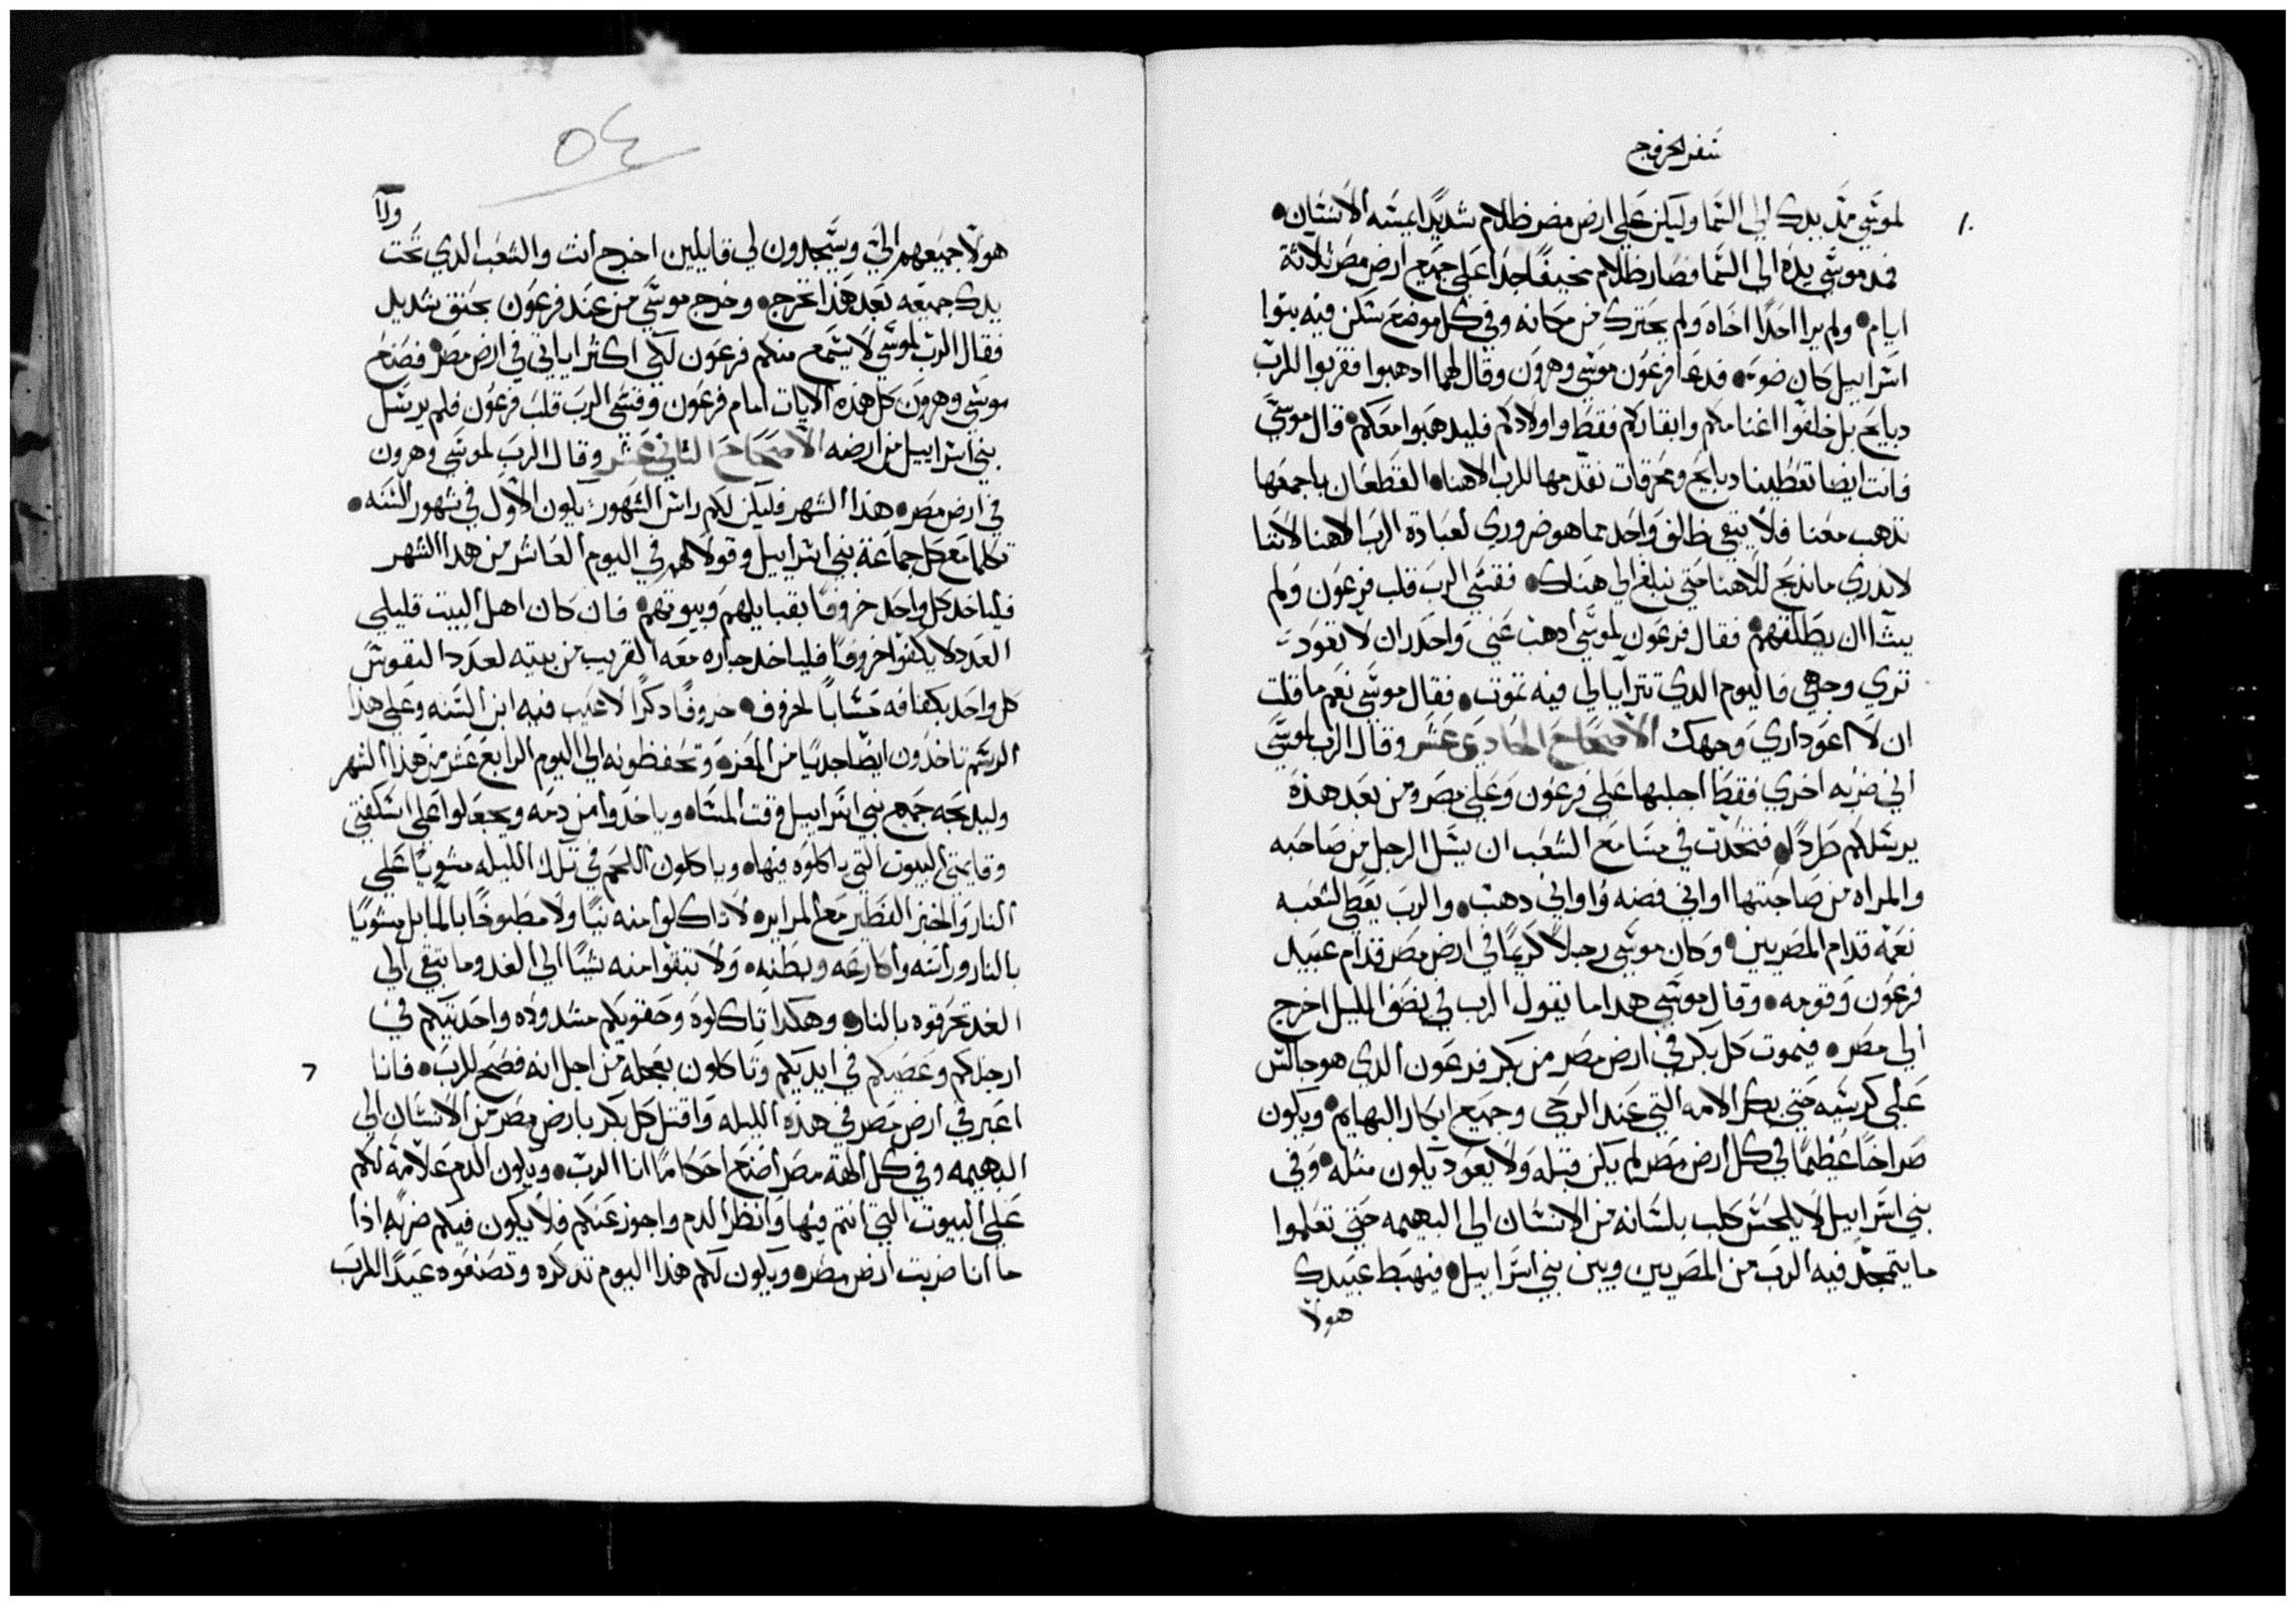 سفر الخروج
لموسي مد يدك الي السما وليكن علي ارض مصر ظلام شديدا يمسه الانسان
فمد موسي يده الي السما فصار ظلام مخيفا جدا علي جميع ارض مصر ثلاثة
ايام ولم يرا احدا اخاه ولم يحترك من مكانه وفي كل موضع سكن فيه بنوا
اسراييل كان ضوء فدعا فرعون موسي وهرون وقال لهما ادهبوا فقربوا للرب
دبايح بل خلفوا اغنامكم وابقاركم فقط واولادكم فليدهبوا معكم قال موسي
فانت ايضا تعطينا دبايح ومحرقات نقدمها للرب الاهنا القطعان باجمعها
تدهب معنا فلا يبقي ظالف واحد مما هو ضروري لعبادة الرب الاهنا لاننا
لا ندري ما ندبح للاهنا حتي نبلغ الي هناك فقسي الرب قلب فرعون ولم
يشا ان يطلقهم فقال فرعون لموسي ادهب عني واحدر ان لا تعود
تري وجهي فاليوم الدي تترايا لي فيه تموت فقال موسي نعم ما قلت
ان لا اعود اري وجهك الاصحاح الحادي عشر وقال الرب لموسي
اني ضربه اخري فقط اجلبها علي فرعون وعلي مصر ومن بعد هذه
يرسلكم طردا فتحدت في مسامع الشعب ان يسل الرجل من صاحبه
والمراه من صاحبتها اواني فضه واواني دهب والرب يعطي لشعبه
نعمة قدام المصريين وكان موسي رجلا كريما في ارض مصر قدام عبيد
فرعون وقومه وقال موسي هدا ما يقول الرب في نصف الليل اخرج
الي مصر فيموت كل بكر في ارض مصر من بكر فرعون الدي هو جالس
علي كرسيه حتي بكر الامه التي عند الرحي وجميع ابكار البهايم ويكون
صراخا عظيما في كل ارض مصر لم يكن قبله ولا يعود يكون مثله وفي
بني اسراييل لا يلحس كلب بلسانه من الانسان الي البهيمه حتي تعلموا
ما يتمجد فيه الرب من المصريين وبين بني اسراييل فيهبط عبيدك
هولا
٥٤
هولا جميعهم الي ويسجدون لي قايلين اخرج انت والشعب الدي تحت
يدك جميعه بعد هذا نخرج وخرج موسي من عند فرعون بحنق شديد
فقال الرب لموسي لا يسمع منكم فرعون لكي اكثر اياتي في ارض مصر فصنع
موسي وهرون كل هذه الايات امام فرعون وقسي الرب قلب فرعون فلم يرسل
بني اسراييل من ارضه الاصحاح الثاني عشر وقال الرب لموسي وهرون
في ارض مصر هذا الشهر فليكن لكم راس الشهور يكون الاول في شهور السنه
تكلما مع كل جماعة بني اسراييل وقولا لهم في اليوم العاشر من هدا الشهر
فلياخد كل واحد خروفا بقبايلهم وبيوتهم فان كان اهل البيت قليلي
العدد لا يكفوا خروفا فلياخد جاره معه القريب من بيته لعدد النفوس
كل واحد بكفافه حسابا لخروف خروفا دكرا لا عيب فيه ابن السنه وعلي هذا
الرسم تاخدون ايضا جديا من المعز وتحفظونه الي اليوم الرابع عشر من هذا الشهر
وليدبحه جميع بني اسراييل وقت المسا وياخدوا من دمه ويجعلوا علي اسكفتي
وقايمتي البيوت التي ياكلوه فيها وياكلون اللحم في تلك الليله مشويا علي
النار والخبز الفطير مع المراير لا تاكلوا منه نيا ولا مطبوخا بالما بل مشويا
بالنار وراسه واكارعه وبطنه ولا تبقوا منه شيا الي الغد وما تبقي الي
الغد تحرقوه بالنار وهكدا تاكلوه وحقويكم مشدوده واحديتكم في
ارجلكم وعصيكم في ايديكم وتاكلون بعجله من اجل انه فصح للرب فانا
اعبر في ارض مصر في هذه الليله واقتل كل بكر بارض مصر من الانسان الي
البهيمه وفي كل الهة مصر اصنع احكاما انا الرب ويكون الدم علامة لكم
علي البيوت التي انتم فيها وانظر الدم واجوز عنكم فلا يكون فيكم ضربه اذا
ما انا ضربت ارض مصر ويكون لكم هذا اليوم تدكره وتصنعوه عيدا للرب